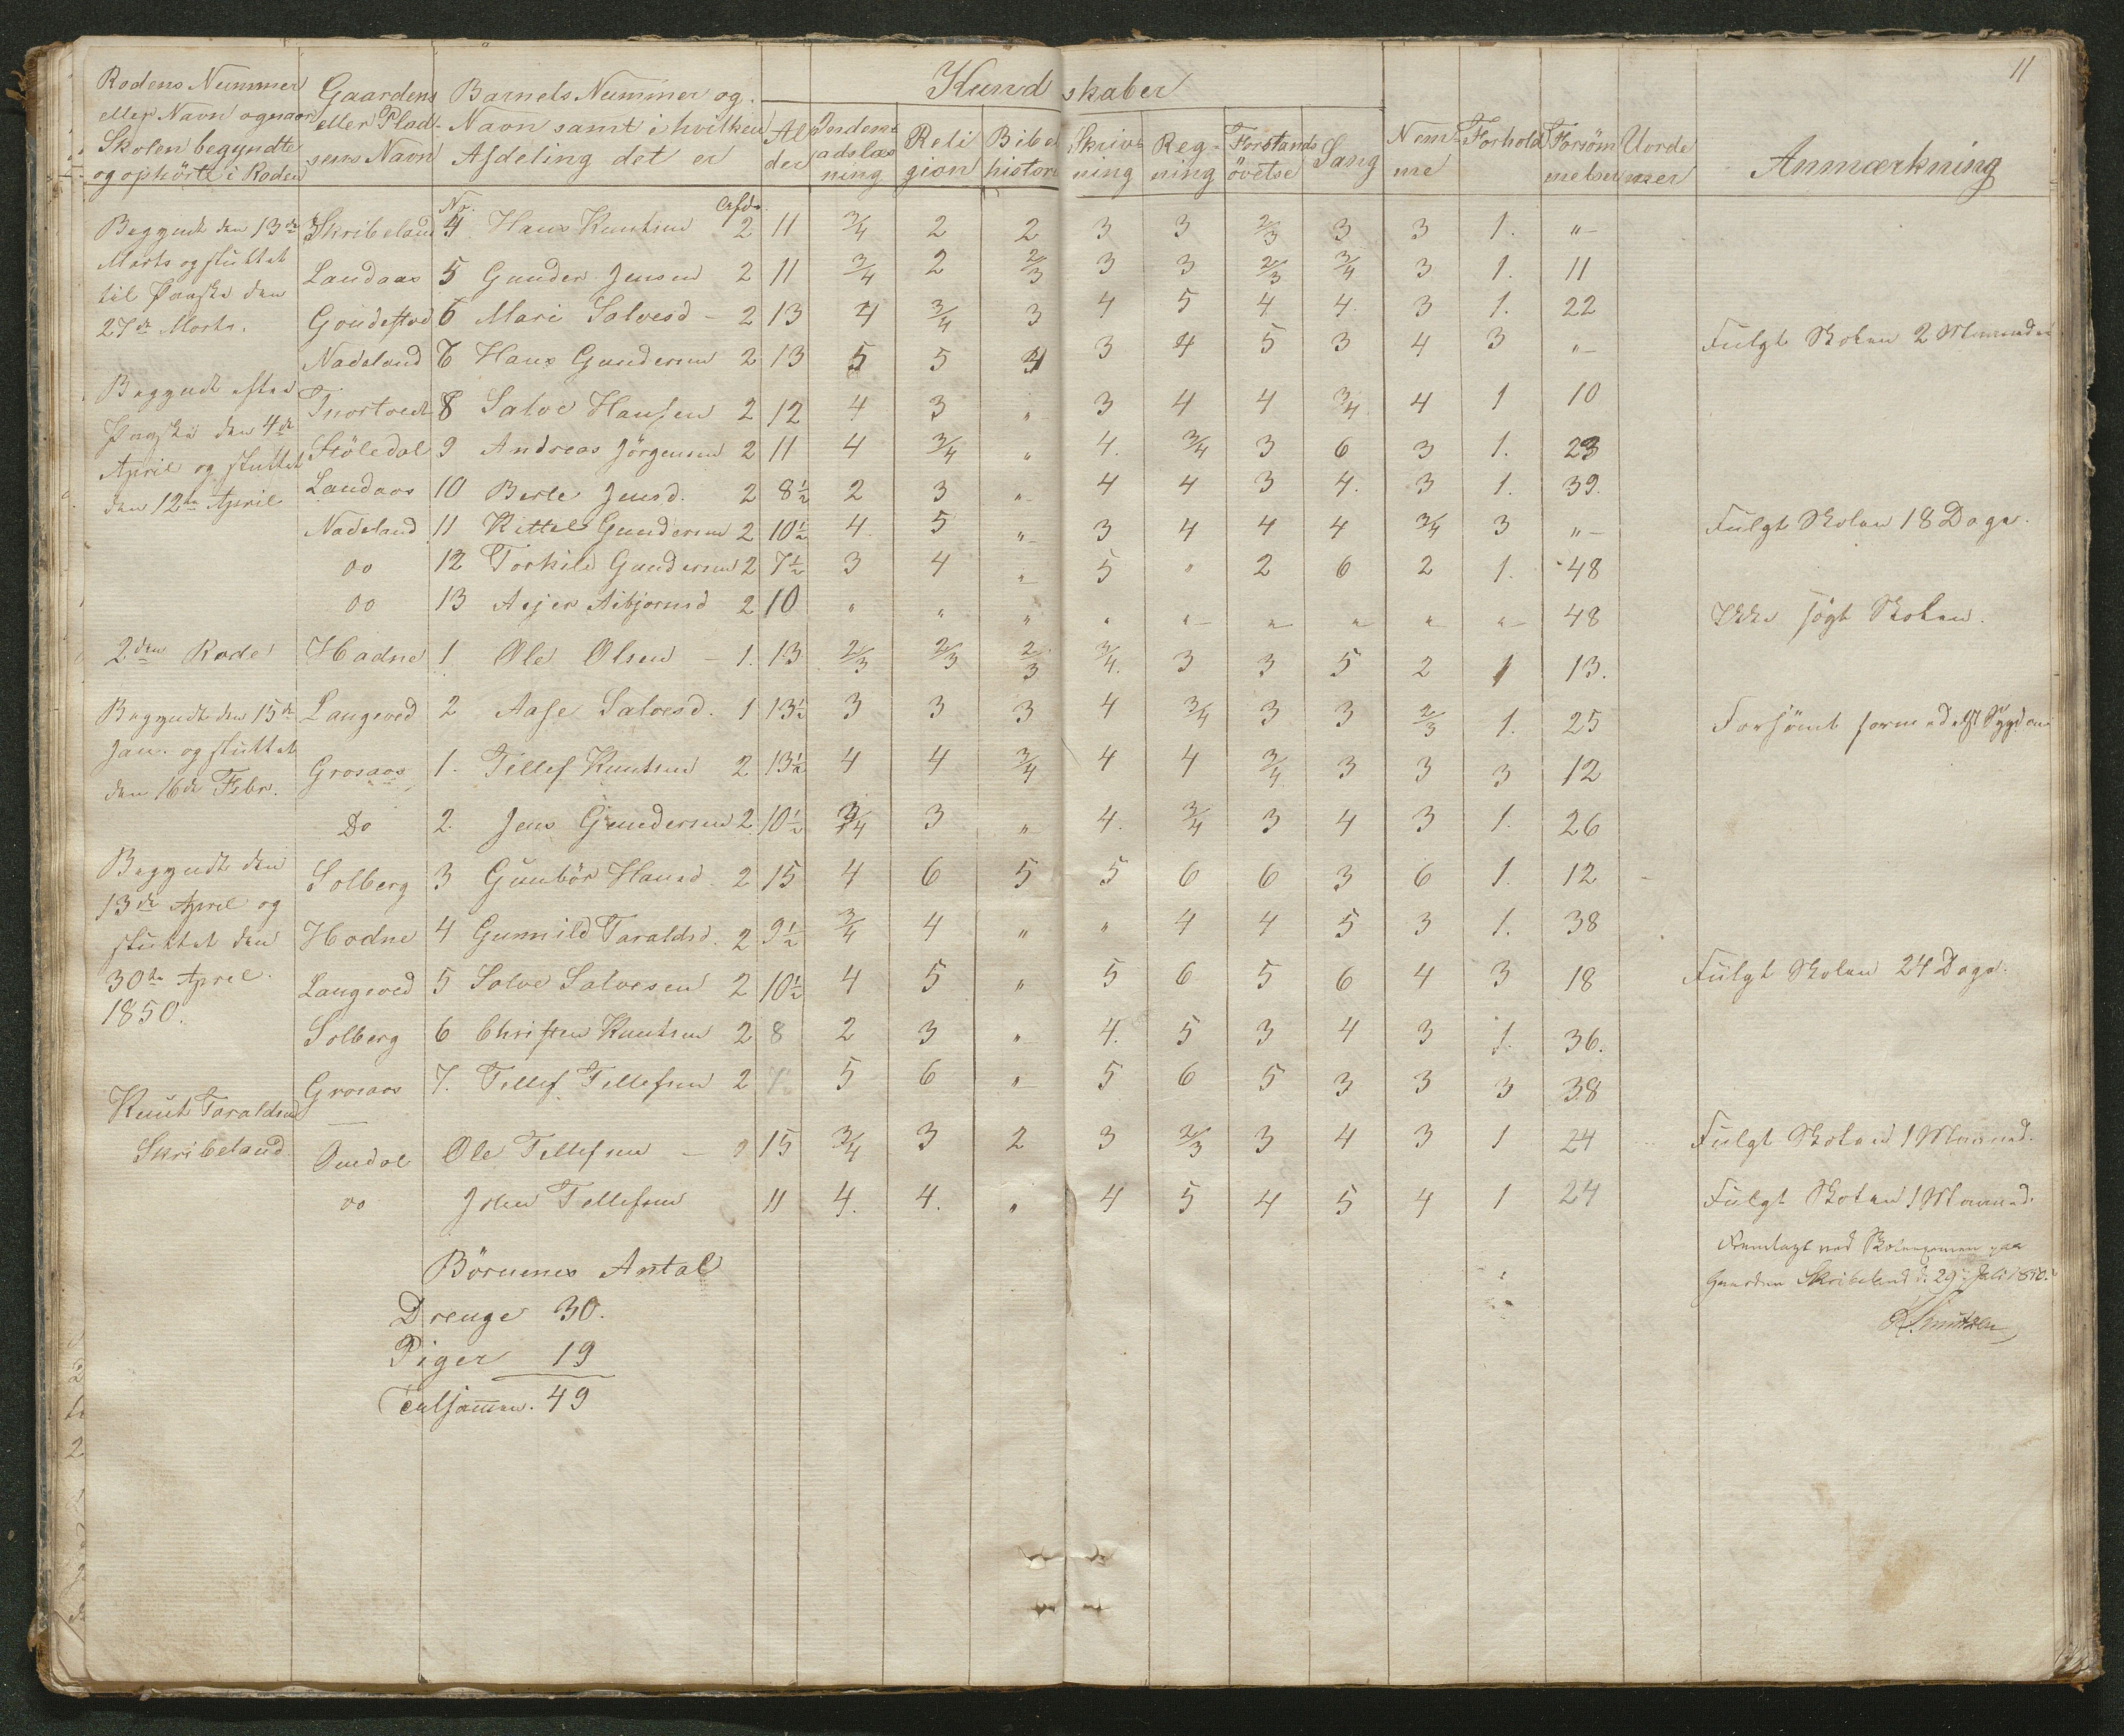 11
Rodens Nummer eller Navn og naar Skolen begyndte og ophörte i Roden | Gaardens eller Plad- sens Navn | Barnets Nummer og Navn samt i hvilken Afdeling det er | Al der | Indenadslæsning | Reli gion | Bibel histori | Skriv- ning | Reg- ning | Forstands övelse | Sang | Nem- me | Forhold | Forsöm melser | Uorde ner | Anmærkning
Kund skaber
No. Afd.
Skribeland 4 Hans Knutsen 2 11 3/4 2 2 3 3 2/3 3 3 1. "
Landaas 5 Gunder Jensen 2 11 3/4 2 2/3 3 3 2/3 3/4 3 1. 11
6 Mari Salvesd - 2 13 4 3/4 3 4 5 4 4. 3 1. 22
Nadeland 7 Hans Gundersen 2 13 5 5 4 3 4 5 3 4 3 " Fulgt Skolen 2 Maaneder
8 Salve Hansen 2 12 4 3 " 3 4 4 3/4 4 1 10
Stöledal 9 Andreas Jörgensen 2 11 4 3/4 " 4. 3/4 3 6 3 1. 23
Landaas 10 Berte Jensd. 2 8½ 2 3 " 4 4 3 4. 3 1. 39.
Nadeland 11 Kittel Gundersen 2 10½ 4. 5 " 3 4 4 4 3/4 3 " Fulgt Skolen 18 Dage.
Do 12 Torkild Gundersen 2 7½ 3 4 " 5 " 2 6 2 1. 48
Do 13 Asjer Asbjornsd 2 10 " " " " " " " " " 48 Ikke sögt Skolen.
Hodne 1 Ole Olsen - 1. 13 2/3 2/3 2/3 3/4. 3 3 5 2 1 13.
Langeved 2 Aase Salvesd. 1 13½ 3 3 3 4 3/4 3 3 2/3 1. 25 Forsömt formedelst Sygdom
Grosaas 1. Tellef Knutsen 2 13½ 4 4 3/4 4 4 3/4 3 3 3 12
Do 2. Jens Gundersen 2 10½ 3/4 3 " 4. 3/4 3 4 3 1. 26
Solberg 3 Gunbör Hansd. 2 15 4 6 5 5 6 6 3 6 1. 12
Hodne 4 Gunnild Taraldsd. 2 9½ 3/4 4 " " 4 4 5 3 1. 38
Langeved 5 Salve Salvesen 2 10½ 4 5 " 5 6 5 6 4 3 18 Fulgt Skolen 24 Dage.
Solberg 6 Christen Knutsen 2 8 2 3 " 4. 5 3 4 3 1. 36.
Grosaas 7. Tellef Tellefsen 2 7 5 6 " 5 6 5 3 3 3 38
Omdal Ole Tellefsen - 2 15 3/4 3 2 3 2/3 3 4 3 1 24 Fulgt Skolen 1 Maaned.
Do John Tellefsen 11 4. 4. " 4 5 4 5 4 1 24 Fulgt Skolen 1 Maaned.
Begyndt den 13de
Marts og sluttet
til Paaske den
27de Marts.
Begyndt efter
Paaske den 4de
April og sluttet
den 12te April
2den Rode
Begyndt den 15de
Jan. og sluttet
den 16de Febr.
Begyndt den
13de April og
sluttet den
30te April
1850.
Knut Taraldsen
Skribeland
Fremlagt ved Skoleexamen paa
Gaarden Skribeland d. 29 Juli 1850.
Börnenes Antal
Drenge 30.
Piger 19
Tilsammen. 49